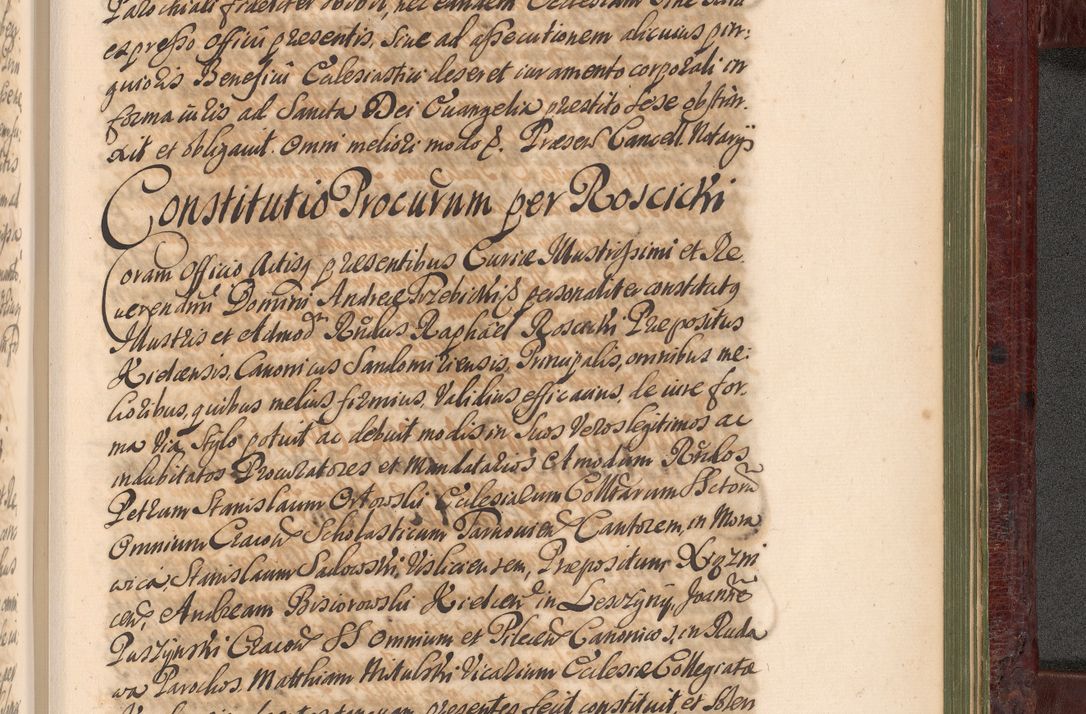 Parochiali fideliter
expresso Officii presentis, Sive ad assecutionem alicuius pin-
guioris Beneficii Ecclesiastici deseret iuramento corporali in
forma iuris ad Sancta Dei Euangelia prestito sese obstrin-
xit et obligauit. Omni meliori modo p. Præsen Cancell. Notarij
Constitutio Procurum per Roscicki
Coram Officio Actisq presentibus Curiæ Illustrissimi et Re-
uerendmi Domini Andreæ Trzebicki p personaliter constitutq
Illustris et Admod Rndus Raphaël Roscicki Præpositus
Kielcensis, Canonicus Sandomiriensis, Principalis, omnibus me-
lioribus, quibus melius firmius, Validius efficacius, de iure for-
ma Via Stylo potuit ac debuit modis in suos Veros legitimos ac
indubitatos Procuratores et Mandatarios Amodum Rndos
Petrum Stanislaum Orłowski Ecclesiarum Colltarum SSctorum
Omnium Cracou Scholasticum Tarnouien Cantorem, in Mora
wica, Stanislaum Sadowski, Visliciensem, Præpositum Xyzni
cen, Andream Bisiorowski Kielcen in Leszyny, Joannē
Paszyński Cracou SS Omnium et Pilecen Canonicos, in Ruda
wa Parochos. Matthiam Mikulski Vicarium Ecclesiæ Collegiatæ
tanquam presentes fecit constituit, et Solen